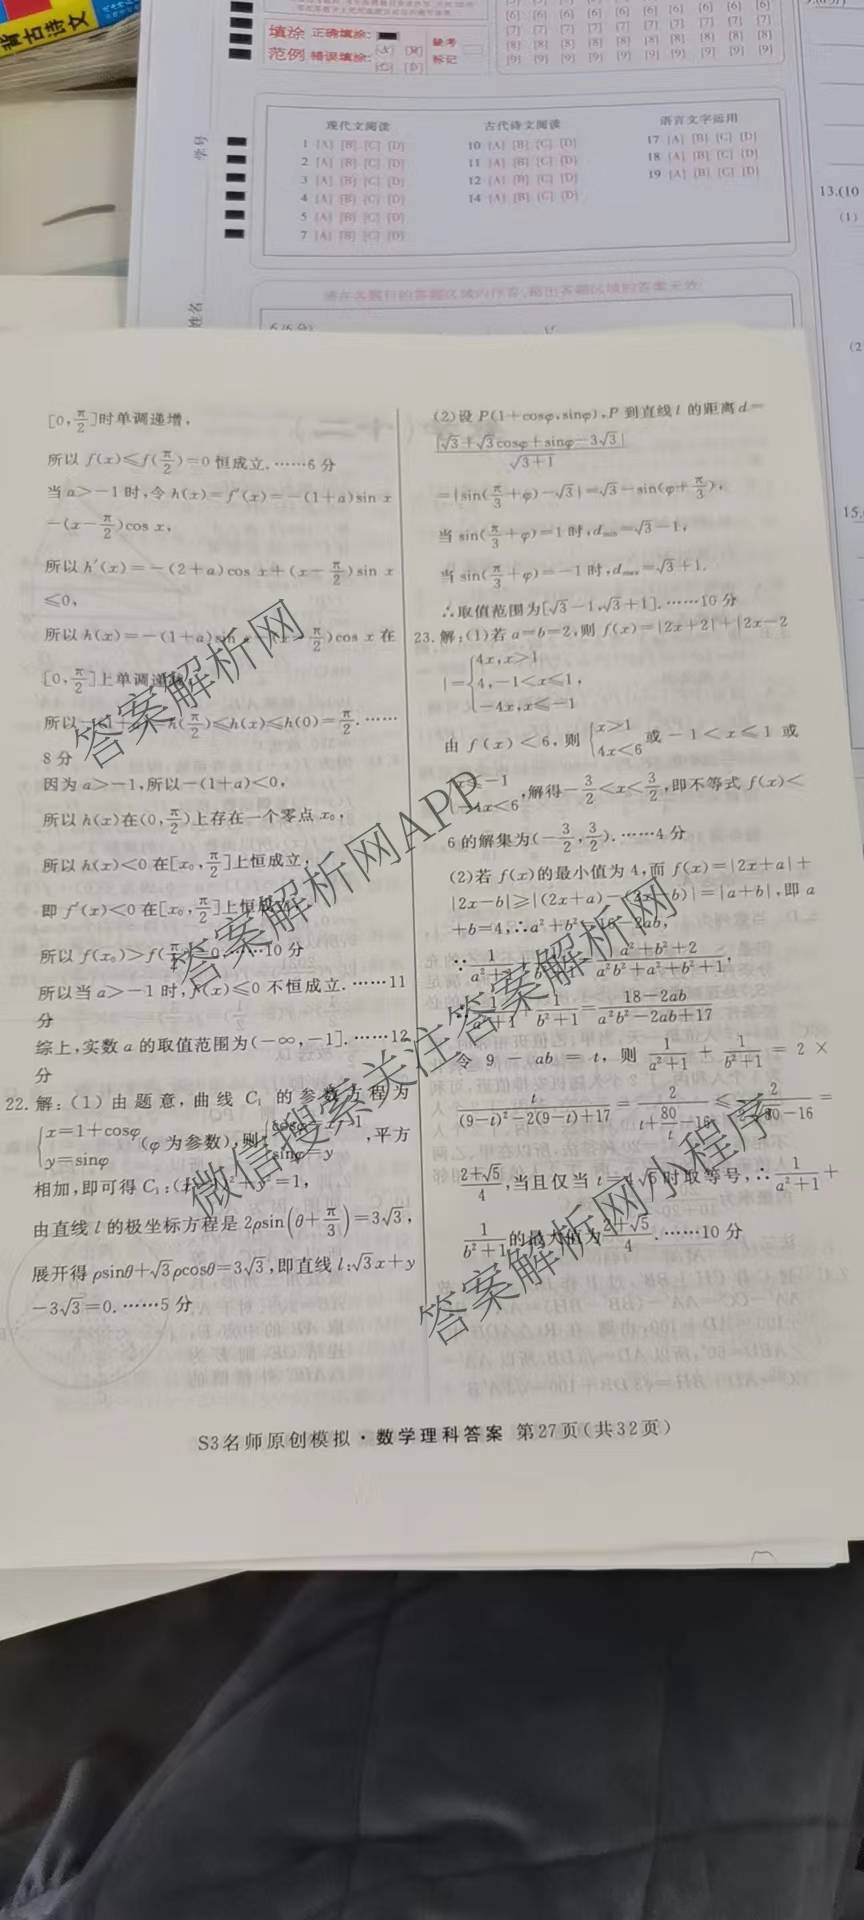 背古诗文
填涂 正确填涂:
范例 错误填涂:
缺考
标记
学号
姓名
现代文阅读 古代诗文阅读 语言文字运用
1 [A] [B] [C] [D] 10 [A] [B] [C] [D] 17 [A] [B] [C] [D]
2 [A] [B] [C] [D] 11 [A] [B] [C] [D] 18 [A] [B] [C] [D]
3 [A] [B] [C] [D] 12 [A] [B] [C] [D] 19 [A] [B] [C] [D]
4 [A] [B] [C] [D] 14 [A] [B] [C] [D]
5 [A] [B] [C] [D]
7 [A] [B] [C] [D]
请在各题目的答题区域内作答,超出答题区域的答案无效
13.(10
(1)
(2
15.(
[0,π/2]时单调递增,
所以 f(x)≤f(π/2)=0 恒成立.……6 分
当 a>-1时,令 h(x)=f′(x)=-(1+a)sin x
-(x-π/2)cos x,
所以 h′(x)=-(2+a)cos x+(x-π/2)sin x
≤0,
所以 h(x)=-(1+a)sin x-(x-π/2)cos x 在
[0,π/2]上单调递
所以-(1+a)=h(π/2)≤h(x)≤h(0)=π/2.……
8 分
因为 a>-1,所以-(1+a)<0,
所以 h(x)在(0,π/2)上存在一个零点 x₀,
所以 h(x)<0 在[x₀,π/2]上恒成立,
即 f′(x)<0 在[x₀,π/2]上恒成立,
所以 f(x₀)>f(π/2)=0,……10 分
所以当 a>-1 时,f(x)≤0 不恒成立.……11
分
综上,实数 a 的取值范围为(-∞,-1].……12
分
22.解:(1)由题意,曲线 C₁ 的参数方程为
{x=1+cosφ y=sinφ (φ 为参数),则{cosφ=x-1 sinφ=y ,平方
相加,即可得 C₁:(x-1)²+y²=1,
由直线 l 的极坐标方程是 2ρsin(θ+π/3)=3√3,
展开得 ρsinθ+√3ρcosθ=3√3,即直线 l:√3x+y
-3√3=0.……5 分
(2)设 P(1+cosφ,sinφ),P 到直线 l 的距离 d=
|√3+√3cosφ+sinφ-3√3|/√3+1
=|sin(π/3+φ)-√3|=√3-sin(φ+π/3),
当 sin(π/3+φ)=1 时,dmin=√3-1,
当 sin(π/3+φ)=-1 时,dmax=√3+1.
∴取值范围为[√3-1,√3+1].……10 分
23.解:(1)若 a=b=2,则 f(x)=|2x+2|+|2x-2
|={4x,x>1 4,-1<x≤1, -4x,x≤-1
由 f(x)<6,则{x>1 4x<6 或-1<x≤1 或
{x≤-1 -4x<6 ,解得-3/2<x<3/2,即不等式 f(x)<
6 的解集为(-3/2,3/2).……4 分
(2)若 f(x)的最小值为 4,而 f(x)=|2x+a|+
|2x-b|≥|(2x+a)-(2x-b)|=|a+b|,即 a
+b=4,∴a²+b²=16-2ab,
∵1/a²+1+1/b²+1=a²+b²+2/a²b²+a²+b²+1,
∴1/a²+1+1/b²+1=18-2ab/a²b²-2ab+17
令 9-ab=t,则 1/a²+1+1/b²+1=2×
t/(9-t)²-2(9-t)+17=2/t+80/t-16≤2/80-16=
2+√5/4,当且仅当 t=4√5时取等号,∴1/a²+1+
1/b²+1的最大值为2+√5/4.……10 分
S3名师原创模拟·数学理科答案 第27页(共32页)
答案解析网
答案解析网APP
微信搜索关注答案解析网
答案解析网小程序